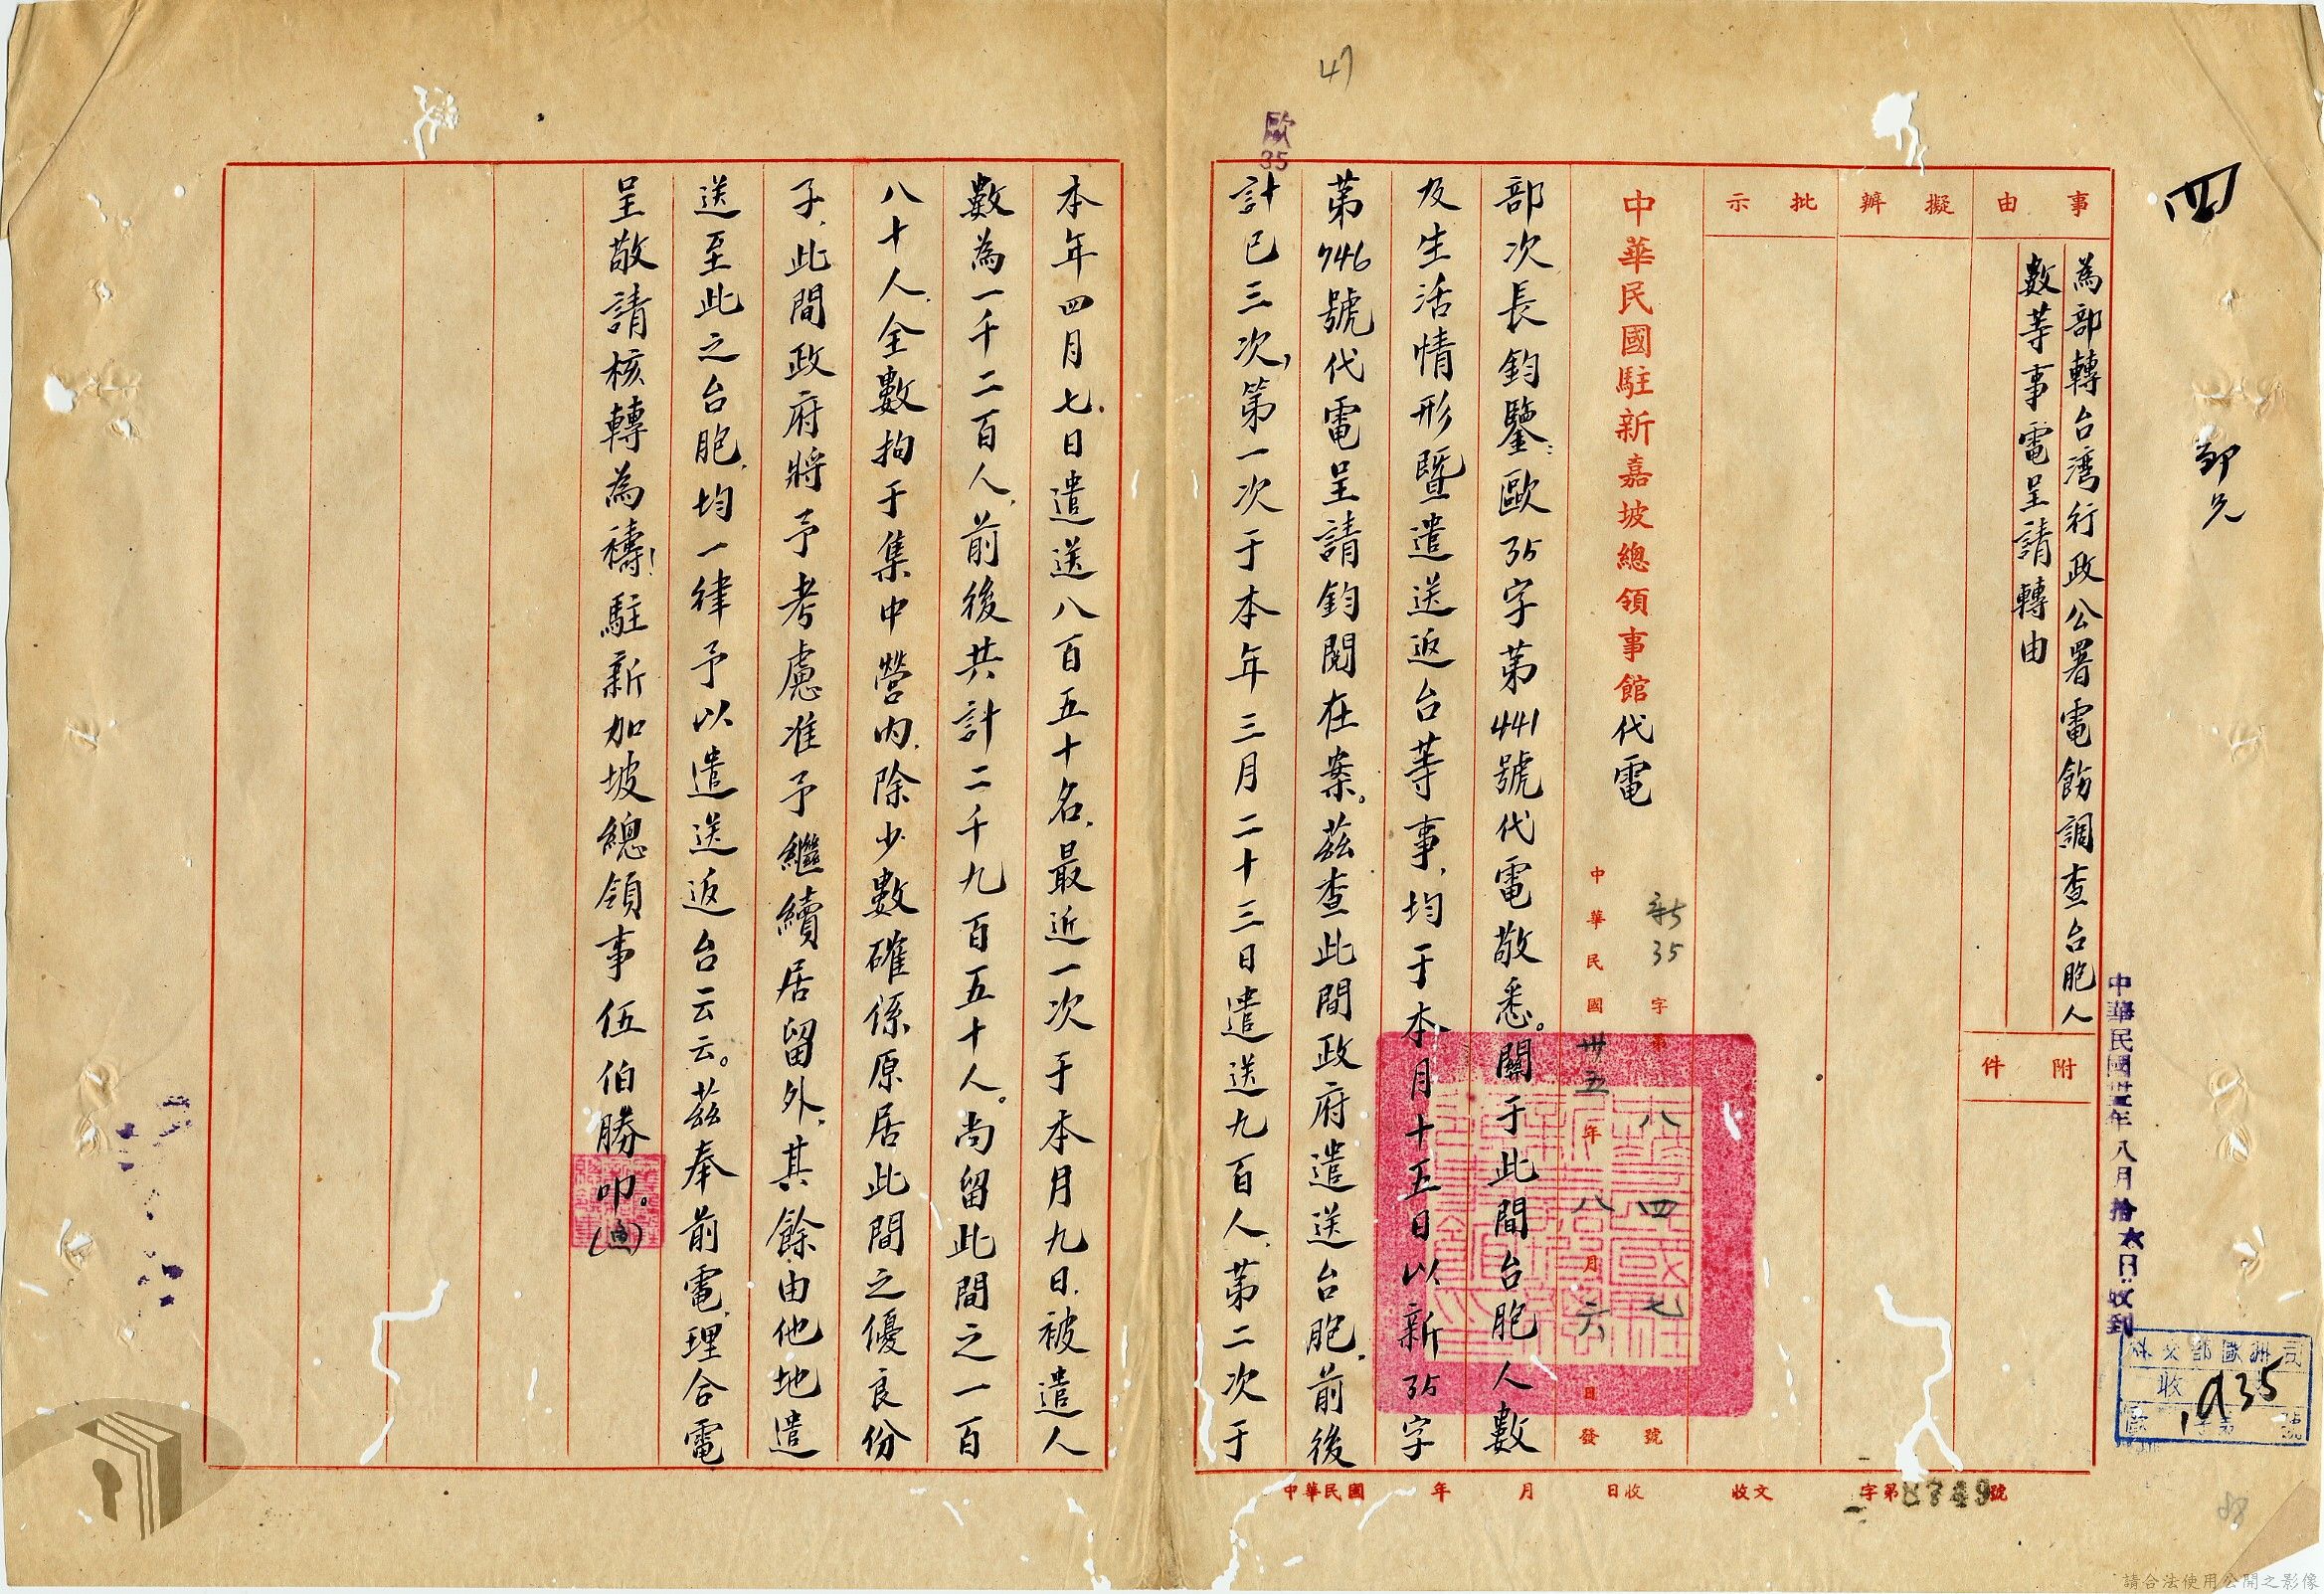 四
鄒兄
事由
擬辦
批示
為部轉台灣行政公署電飭調查台胞人
數等事電呈請轉由
附件
中華民國卅五年八月拾六日收到
歐洲司
收
935
中華民國駐新嘉坡總領事館代電
新35字第八四七號
中華民國卅五年八月六日發
部次長鈞鑒：歐35字第441號代電敬悉。關于此間台胞人數
及生活情形暨遣送返台等事，均于本月十五日以新35字
第746號代電呈請鈞閱在案。茲查此間政府遣送台胞，前後
計已三次，第一次于本年三月二十三日遣送九百人，第二次于
歐35
47
中華民國 年 月 日收 收文 字第8749號
本年四月七日遣送八百五十名，最近一次于本月九日，被遣人
數為一千二百人，前後共計二千九百五十人。尚留此間之一百
八十人，全數拘于集中營內，除少數確係原居此間之優良份
子，此間政府將予考慮准予繼續居留外，其餘由他地遣
送至此之台胞，均一律予以遣送返台云云。茲奉前電，理合電
呈敬請核轉為禱！駐新加坡總領事伍伯勝叩。
88
請合法使用公開之影像